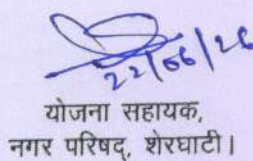 22/06/26
योजना सहायक,
नगर परिषद्, शेरघाटी।